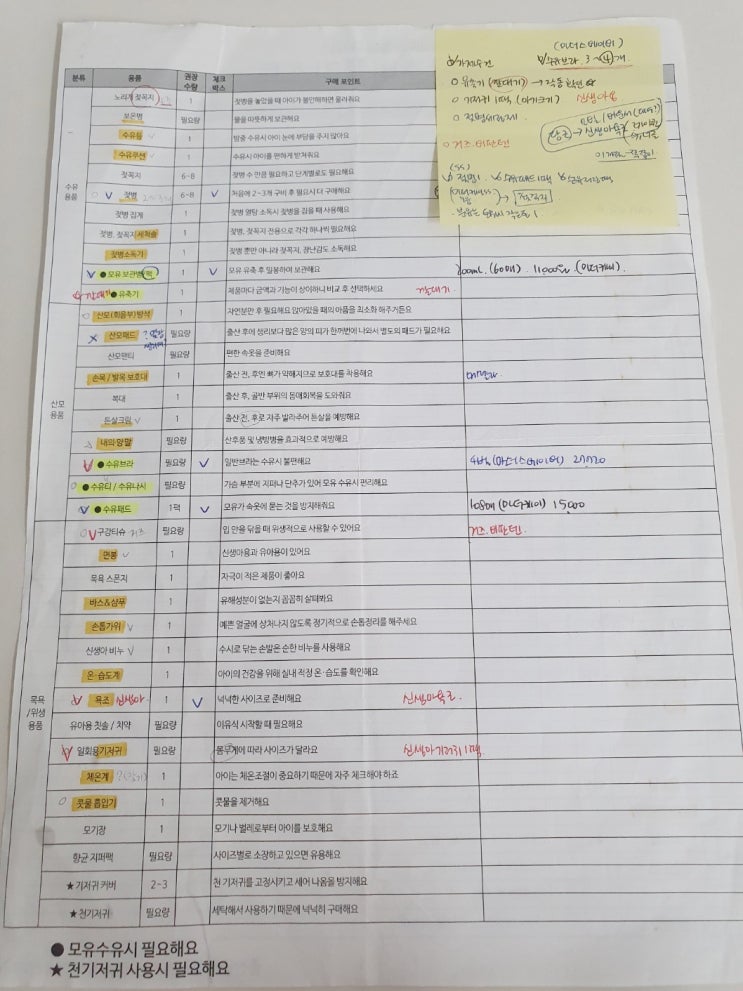 (마더스베이비)
수유브라 3~4개
유축기 (깔대기) → 작동 확인
기저귀 1팩 (아기크기) 신생아용
젖병세정제
거즈. 비판텐
(SS)
분류 용품 권장수량 체크박스 구매 포인트
수유용품
노리개 젖꼭지 1 젖병을 놓았을 때 아이가 불안해하면 물려줘요
보온병 필요량 물을 따뜻하게 보관해요
수유등 1 밤중 수유시 아이 눈에 부담을 주지 않아요
수유쿠션 1 수유시 아이를 편하게 받쳐줘요
젖꼭지 6-8 젖병 수 만큼 필요하고 단계별로도 필요해요
젖병 6-8 V 처음에 2~3개 구비 후 필요시 더 구매해요
젖병 집게 1 젖병 열탕 소독시 젖병을 집을 때 사용해요
젖병, 젖꼭지 세척솔 1 젖병, 젖꼭지 전용으로 각각 하나씩 필요해요
젖병소독기 1 젖병 뿐만 아니라 젖꼭지, 장난감도 소독해요
V ●모유 보관병/팩 1 V 모유 유축 후 밀봉하여 보관해요 200ml. (60매)
깔대기 ●유축기 1 제품마다 금액과 기능이 상이하니 비교 후 선택하세요 깔대기
산모용품
산모(회음부)방석 1 자연분만 후 필요해요 앉아있을 때의 아픔을 최소화 해주거든요
산모패드 필요량 출산 후에 생리보다 많은 양의 피가 한꺼번에 나와서 별도의 패드가 필요해요
산모팬티 필요량 편한 속옷을 준비해요
손목 / 발목 보호대 1 출산 전, 후엔 뼈가 약해지므로 보호대를 착용해요
복대 1 출산 후, 골반 부위의 몸매회복을 도와줘요
튼살크림 V 1 출산 전, 후로 자주 발라주어 튼살을 예방해요
내의·양말 필요량 산후풍 및 냉방병을 효과적으로 예방해요
V ●수유브라 필요량 V 일반브라는 수유시 불편해요
●수유티 / 수유나시 필요량 가슴 부분에 지퍼나 단추가 있어 모유 수유시 편리해요
V ●수유패드 1팩 V 모유가 속옷에 묻는 것을 방지해줘요 108매 (마더케이) 15,000
목욕/위생용품
V 구강티슈 거즈 필요량 입 안을 닦을 때 위생적으로 사용할 수 있어요 거즈. 비판텐.
면봉 V 1 신생아용과 유아용이 있어요
목욕 스폰지 1 자극이 적은 제품이 좋아요
바스&샴푸 1 유해성분이 없는지 꼼꼼히 살펴봐요
손톱가위 V 1 예쁜 얼굴에 상처나지 않도록 정기적으로 손톱정리를 해주세요
신생아 비누 V 1 수시로 닦는 손발은 순한 비누를 사용해요
온·습도계 1 아이의 건강을 위해 실내 적정 온·습도를 확인해요
욕조 신생아 1 V 넉넉한 사이즈로 준비해요 신생아욕조.
유아용 칫솔 / 치약 필요량 이유식 시작할 때 필요해요
V 일회용기저귀 필요량 몸무게에 따라 사이즈가 달라요 신생아기저귀 1팩.
체온계 1 아이는 체온조절이 중요하기 때문에 자주 체크해야 하죠
콧물 흡입기 1 콧물을 제거해요
모기장 1 모기나 벌레로부터 아이를 보호해요
항균 지퍼팩 필요량 사이즈별로 소장하고 있으면 유용해요
★기저귀 커버 2-3 천 기저귀를 고정시키고 세어 나옴을 방지해요
★천기저귀 필요량 세탁해서 사용하기 때문에 넉넉히 구매해요
● 모유수유시 필요해요
★ 천기저귀 사용시 필요해요